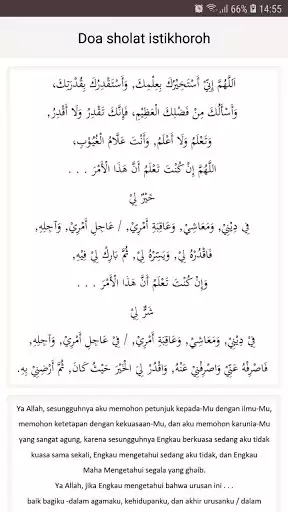 66% 14:55
Doa sholat istikhoroh
اَللَّهُمَّ إِنِّيْ أَسْتَخِيْرُكَ بِعِلْمِكَ, وَأَسْتَقْدِرُكَ بِقُدْرَتِكَ,
وَأَسْأَلُكَ مِنْ فَضْلِكَ الْعَظِيْمِ, فَإِنَّكَ تَقْدِرُ وَلَا أَقْدِرُ,
وَتَعْلَمُ وَلَا أَعْلَمُ, وَأَنْتَ عَلَّامُ الْغُيُوْبِ,
اللَّهُمَّ إِنْ كُنْتَ تَعْلَمُ أَنَّ هَذَا الْأَمْرَ . . .
خَيْرٌ لِيْ
فِي دِيْنِيْ, وَمَعَاشِيْ, وَعَاقِبَةِ أَمْرِيْ, / عَاجِلِ أَمْرِيْ, وَآجِلِهِ,
فَاقْدُرْهُ لِيْ, وَيَسِّرْهُ لِيْ, ثُمَّ بَارِكْ لِيْ فِيْهِ,
وَإِنْ كُنْتَ تَعْلَمُ أَنَّ هَذَا الْأَمْرَ . . .
شَرٌّ لِيْ
فِيْ دِيْنِيْ, وَمَعَاشِيْ, وَعَاقِبَةِ أَمْرِيْ, / فِيْ عَاجِلِ أَمْرِيْ, وَآجِلِهِ,
فَاصْرِفْهُ عَنِّيْ وَاصْرِفْنِيْ عَنْهُ, وَاقْدُرْ لِيَ الْخَيْرَ حَيْثُ كَانَ, ثُمَّ أَرْضِنِيْ بِهِ.
Ya Allah, sesungguhnya aku memohon petunjuk kepada-Mu dengan ilmu-Mu,
memohon ketetapan dengan kekuasaan-Mu, dan aku memohon karunia-Mu
yang sangat agung, karena sesungguhnya Engkau berkuasa sedang aku tidak
kuasa sama sekali, Engkau mengetahui sedang aku tidak, dan Engkau
Maha Mengetahui segala yang ghaib.
Ya Allah, jika Engkau mengetahui bahwa urusan ini . . .
baik bagiku -dalam agamaku, kehidupanku, dan akhir urusanku / dalam